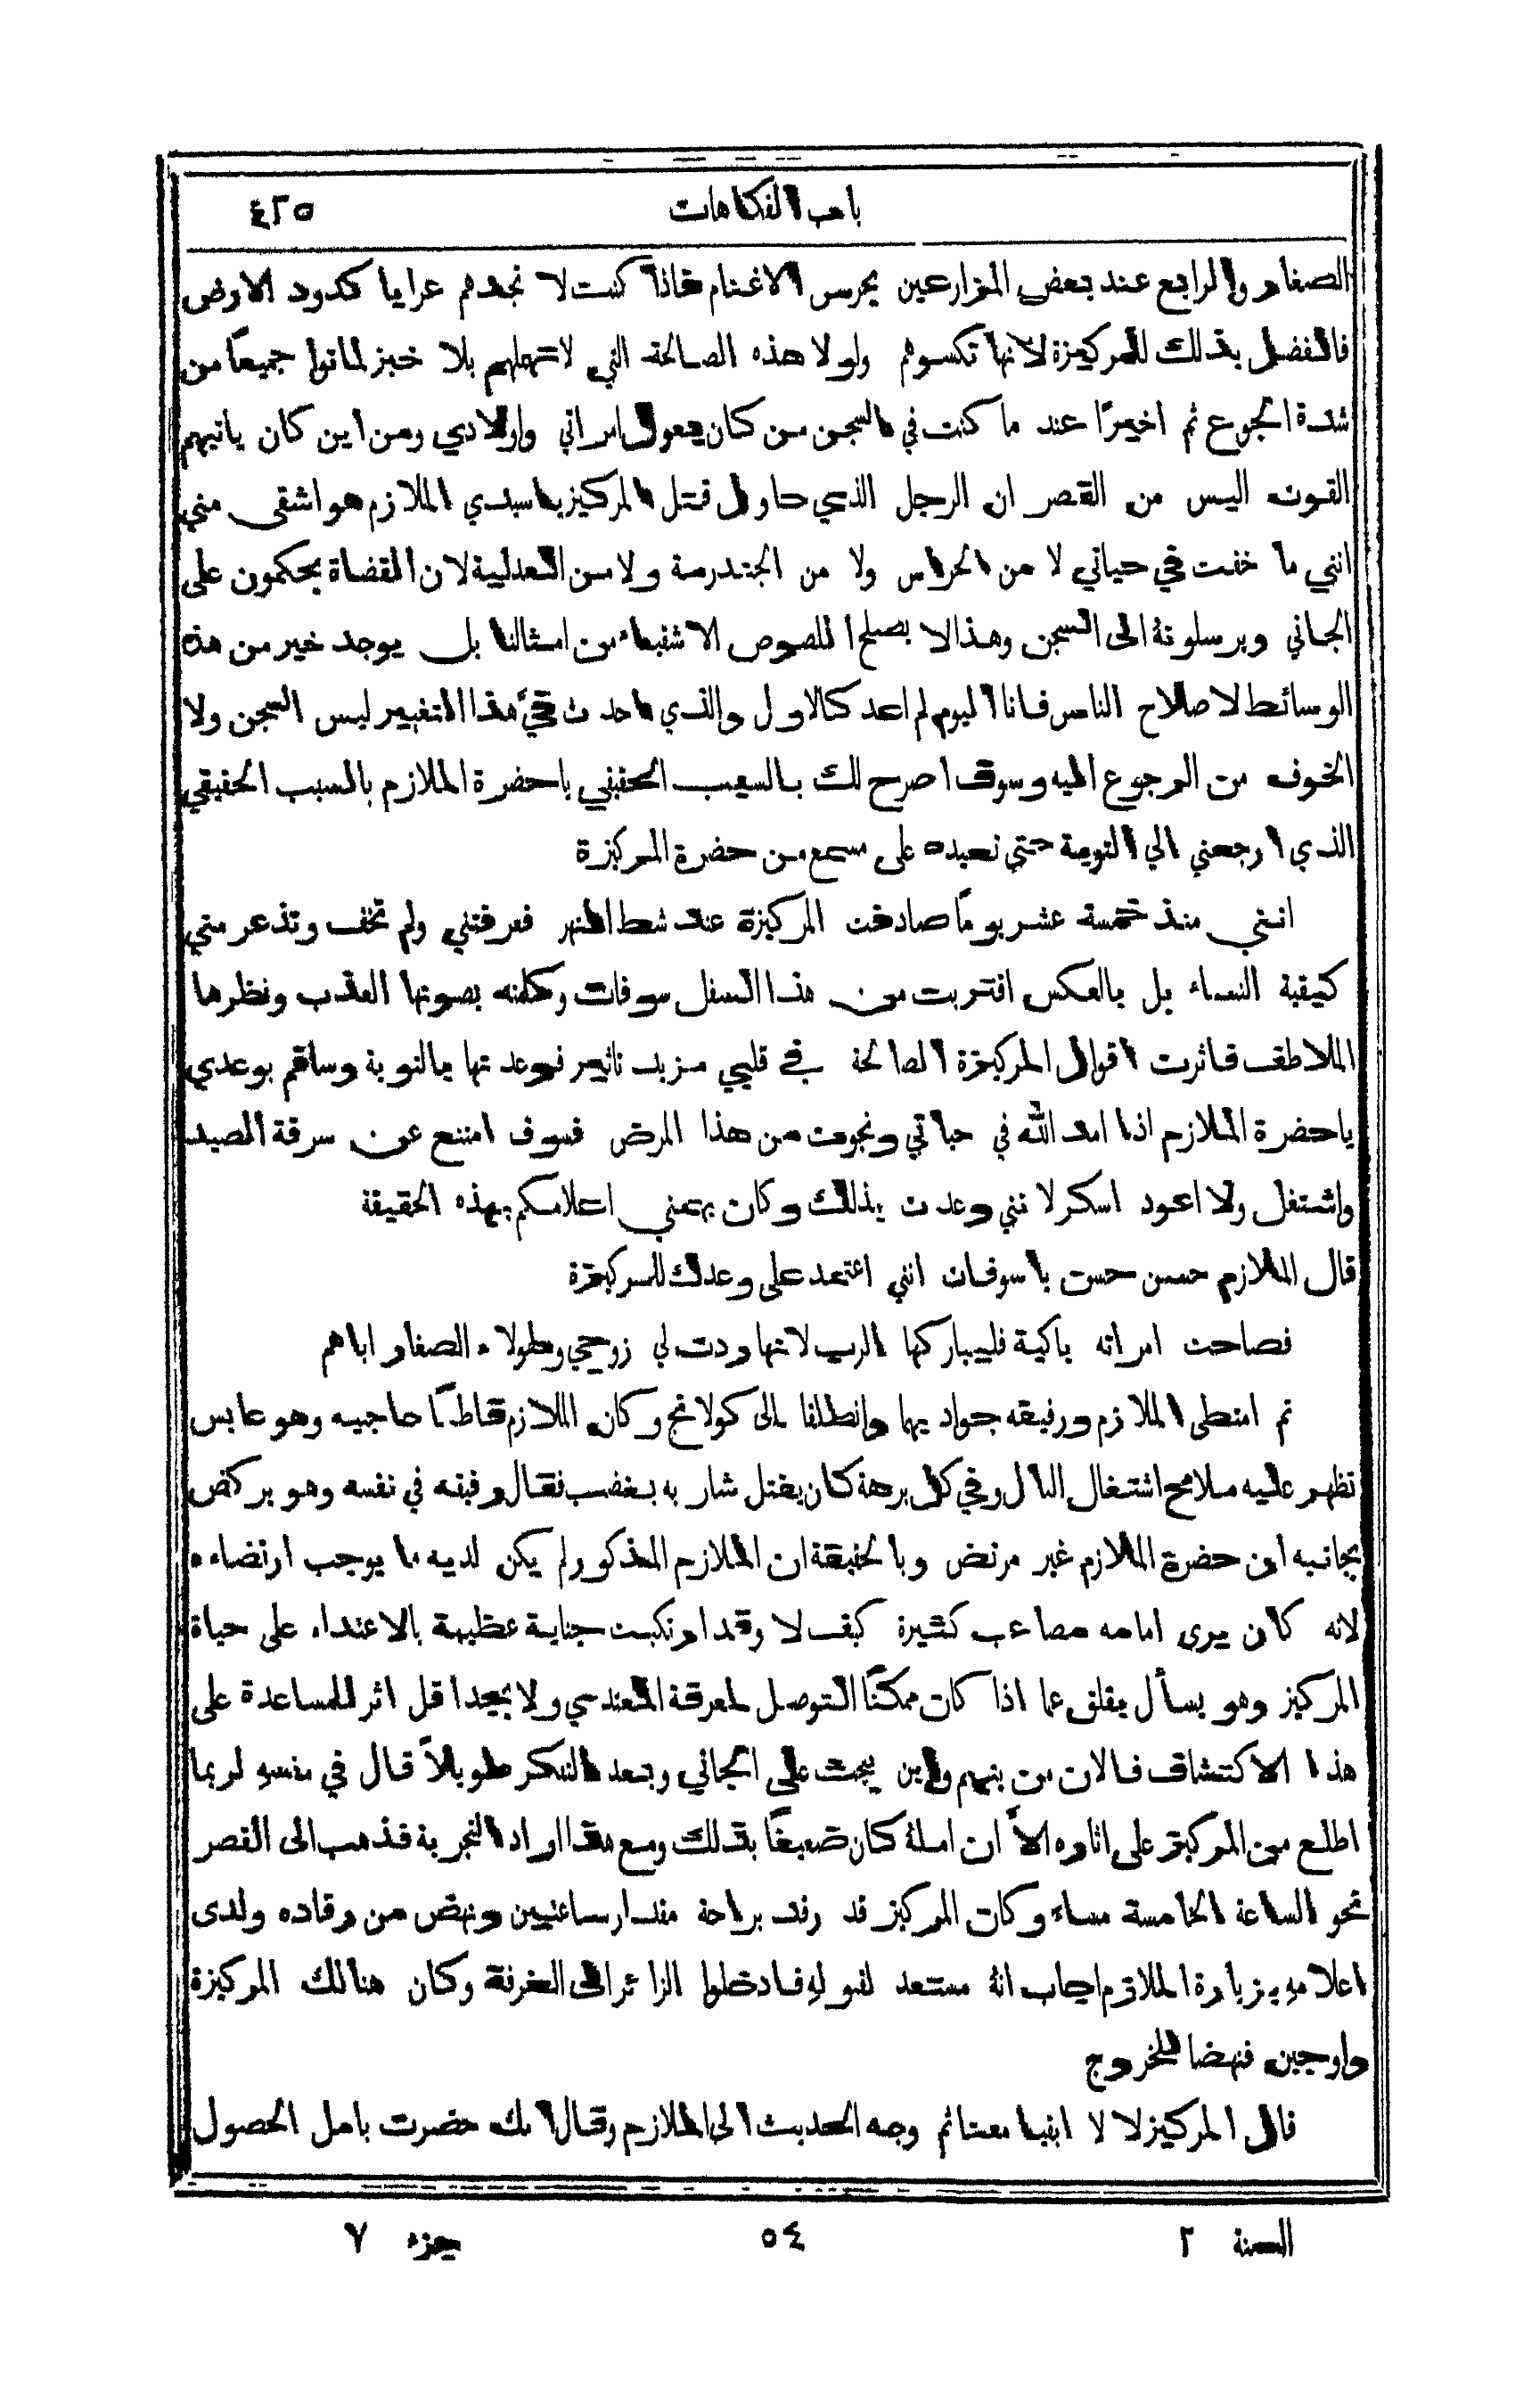 باب الفكاهات ٤٢٥
الصغار والرابع عند بعض المزارعين يحرس الاغنام فاذا كنت لا تجدهم عرايا كدود الارض
فالفضل بذلك للمركيزة لانها تكسوهم ولولا هذه الصالحة التي لا تمهلهم بلا خبز لماتوا جميعًا من
شدة الجوع ثم اخيرًا عند ما كنت في السجن من كان يعول امراتي واولادي ومن اين كان ياتيهم
القوت اليس من القصر ان الرجل الذي حاول قتل المركيز يا سيدي الملازم هو اشقى مني
انني ما خفت في حياتي لا من الحراس ولا من الجندرمة ولا من العدلية لان القضاة يحكمون على
الجاني ويرسلونهُ الى السجن وهذا لا يصلح اللصوص الاشقياء من امثالنا بل يوجد خير من هذه
الوسائط لاصلاح الناس فانا اليوم لم اعد كالاول والذي احدث فيَّ هذا التغيير ليس السجن ولا
الخوف من الرجوع اليه وسوف اصرح لك بالسبب الحقيقي يا حضرة الملازم بالسبب الحقيقي
الذي ارجعني الى التوبة حتى نعيده على مسمع من حضرة المركيزة
انني منذ خمسة عشر يومًا صادفت المركيزة عند شط النهر فعرفتني ولم تخف وتذعر مني
كبقية النساء بل بالعكس اقتربت من هذا السفل سوفات وكلمته بصوتها العذب ونظرها
الملاطف فاثرت اقوال المركيزة الصالحة في قلبي مزيد تاثير فوعدتها بالتوبة وساقم بوعدي
يا حضرة الملازم اذا امد الله في حياتي ونجوت من هذا المرض فسوف امتنع عن سرقة الصيد
واشتغل ولا اعود اسكر لانني وعدت بذلك وكان يهمني اعلامكم بهذه الحقيقة
قال الملازم حسن حسن يا سوفات انني اعتمد على وعدك للمركيزة
فصاحت امراته باكية فليباركها الرب لانها ردت لي زوجي ولهولاء الصغار اباهم
ثم امتطى الملازم ورفيقه جواديهما وانطلقا الى كولانج وكان الملازم قاطبًا حاجبيه وهو عابس
تظهر عليه ملامح اشتغال البال وفي كل برهة كان يفتل شاربه بغضب فقال رفيقه في نفسه وهو يركض
بجانبه ان حضرة الملازم غير مرتض وبالحقيقة ان الملازم المذكور لم يكن لديه ما يوجب ارتضاءه
لانه كان يرى امامه مصاعب كثيرة كيف لا وقد ارتكبت جناية عظيمة بالاعتداء على حياة
المركيز وهو يسأل بقلق عما اذا كان ممكنًا التوصل لمعرفة المعتدي ولا يجد اقل اثر للمساعدة على
هذا الاكتشاف فالان من يتهم واين يبحث على الجاني وبعد التفكر طويلاً قال في نفسهِ لربما
اطلع من المركيز على اثاره الاَّ ان املهُ كان ضعيفًا بذلك ومع هذا اراد التجربة فذهب الى القصر
نحو الساعة الخامسة مساء وكان المركيز قد رقد براحة مقدار ساعتين ونهض من رقاده ولدى
اعلامهِ بزيارة الملازم اجاب انهُ مستعد لقبولهِ فادخلوا الزائر الى الغرفة وكان هنالك المركيزة
واوجين فنهضا للخروج
قال المركيز لا لا ابقيا معنا ثم وجه الحديث الى الملازم وقال انك حضرت بامل الحصول
السنة ٢ ٥٤ جزء ٧